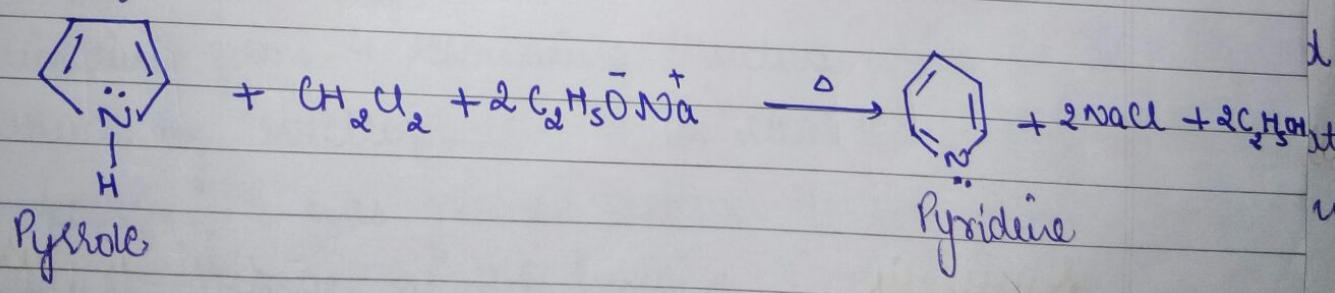 N̈
H
+ CH₂Cl₂ + 2C₂H₅ŌN⁺a →Δ N̈ + 2NaCl + 2C₂H₅OH
Pyrrole
Pyrideine